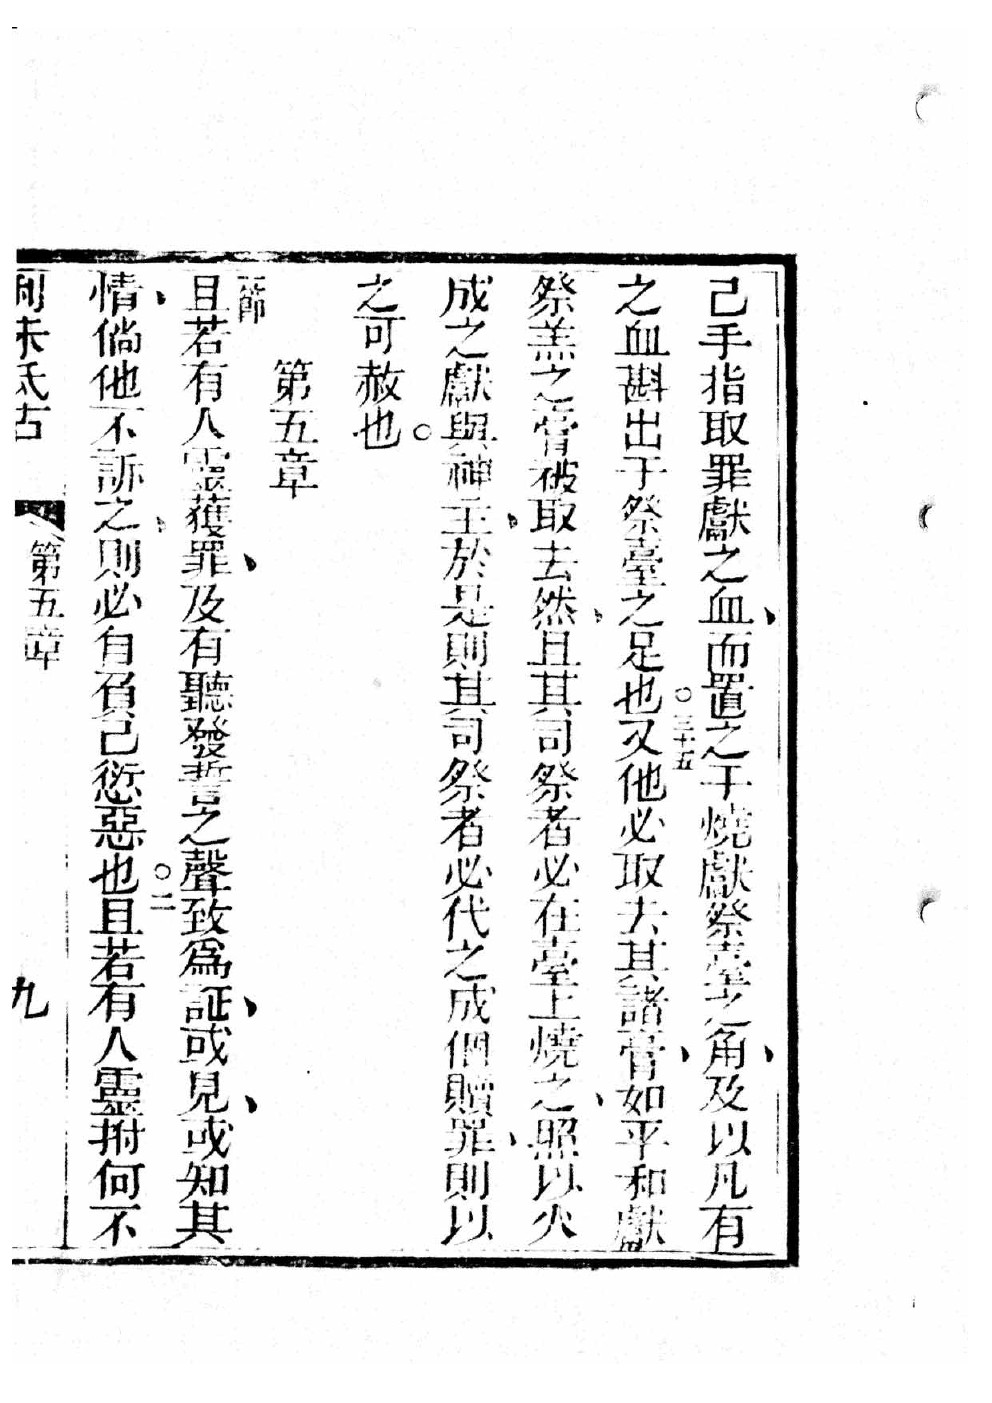 己手指取罪獻之血、而置之于燒獻祭臺之角、及以凡有
之血斟出于祭臺之足也○三十五又他必取去其諸膏、如平和獻
祭羔之膏被取去然、且其司祭者必在臺上燒之、照以火
成之獻與神主、於是則其司祭者必代之成個贖罪、則以
之可赦也○
第五章
一節
且若有人靈獲罪、及有聽發誓之聲致爲証、或見、或知其
情、倘他不訴之、則必自負己愆惡也○二且若有人靈拊何不
利未氏古
第五章
九